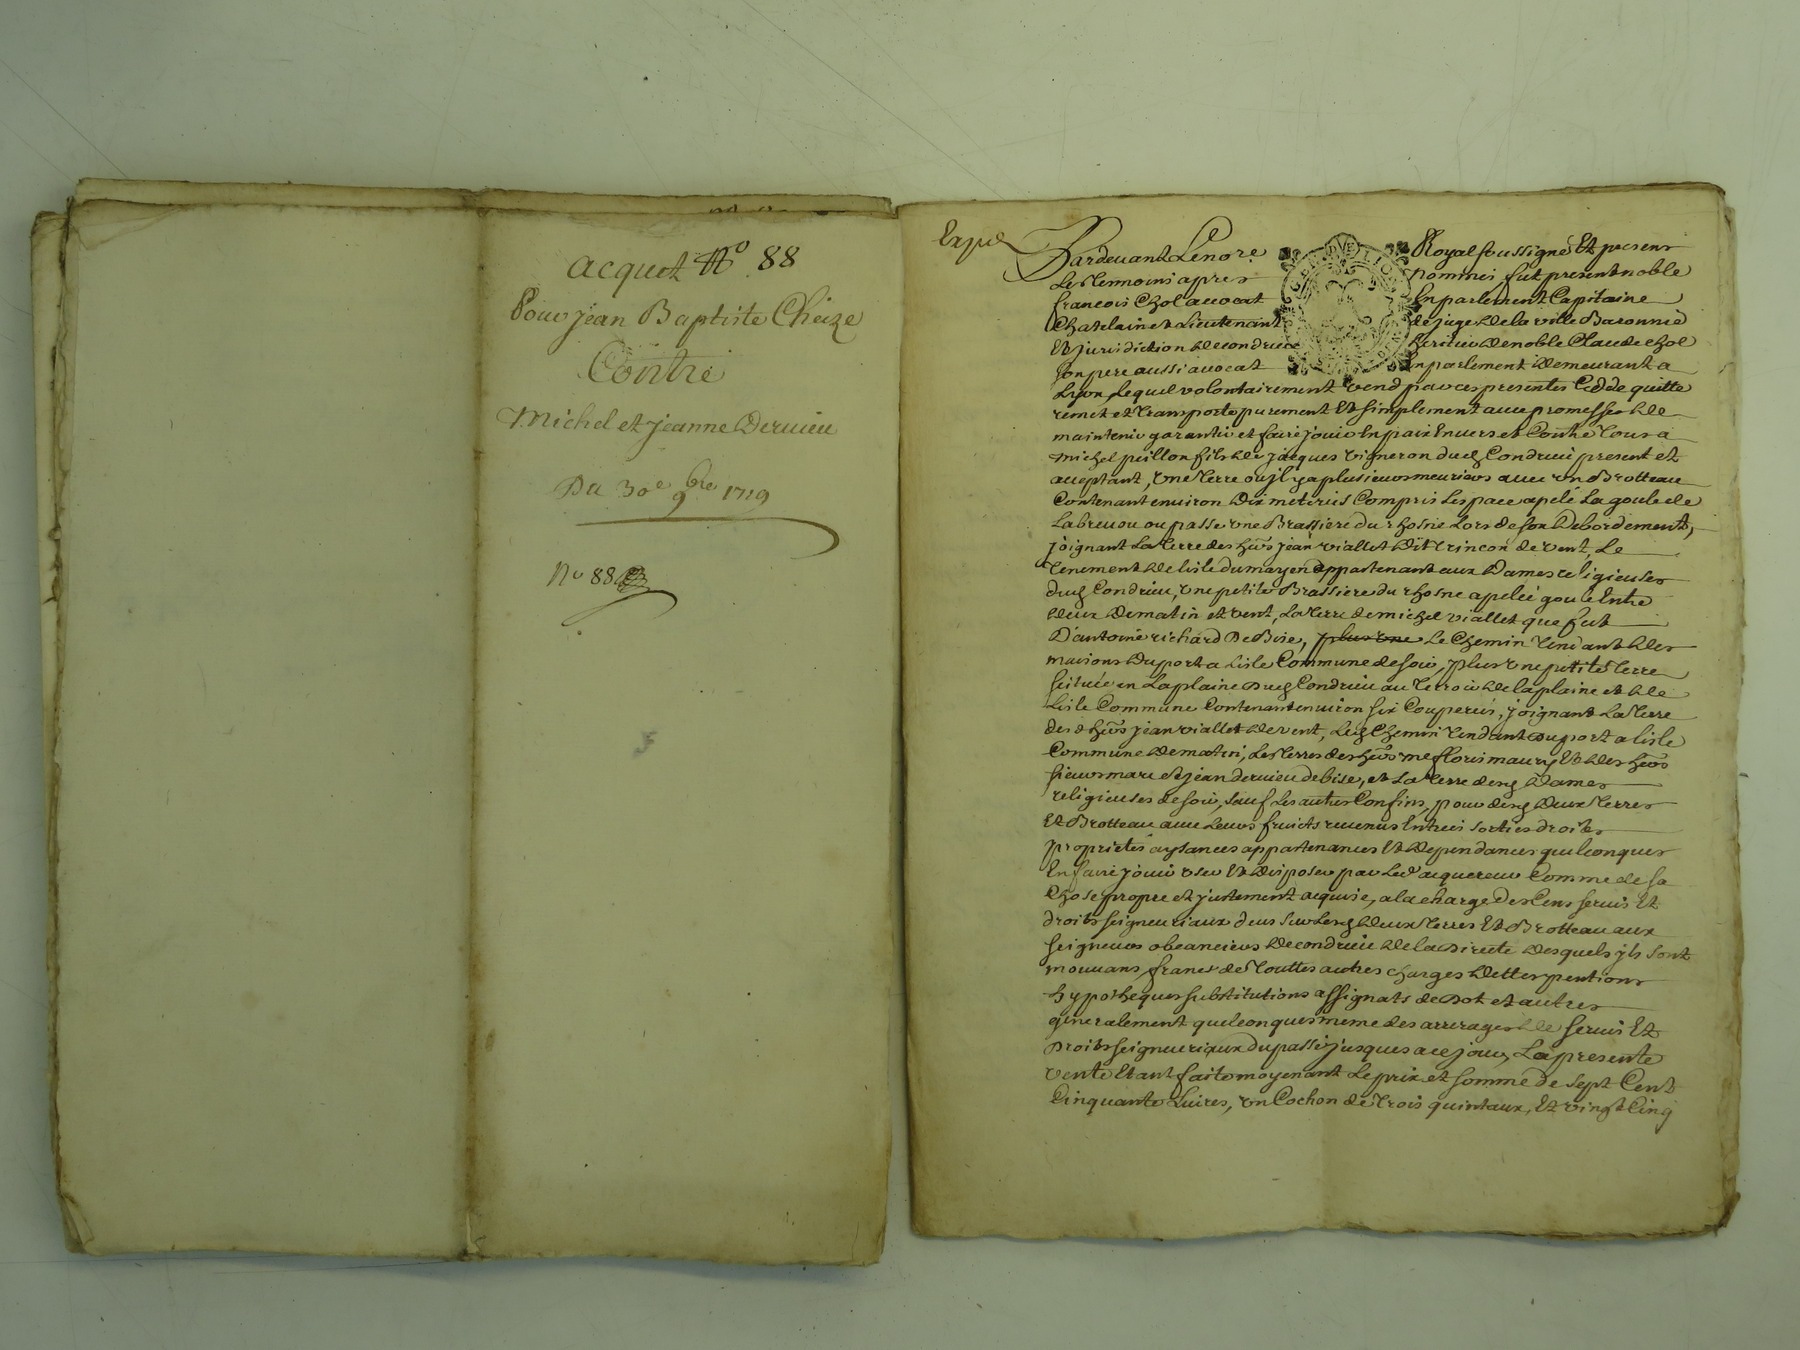 acquet N.o 88
Pour jean Baptiste Cheize
Contre
Michel et jeanne Dervieu
Du 30e 9bre 1719
No 88
Expé
Pardevant Le nore Royal soussigné Et presens
Les Temoins apres nommés fut present noble
francois Chol avocat En parlement Capitaine
Chatelain et Lieutenant de juge de la ville Baronnie
Et jurisdiction de condrieu heritier de noble Claude chol
son pere aussi avocat En parlement demeurant a
Lyon, Lequel volontairement vend par ces presentes Cedde quitte
remet et transporte purement Et simplement avec promesses de
maintenir garantir et faire jouir En paix Envers et Contre Tous a
michel peillon fils de jacques vigneron dud Condrieu present et
aceptant, vne Terre ou jl y a plusieurs meuriers avec vn Brotteau
Contenant environ Dix meterés Compris Lespace apelé La goule de
Labreuou ou passe vne Brassiere du rhosne Lors de son Debordement,
joignant La Terre des hers jean viallet Dit Trincon de vent, Le
Tenement de lisle du mayen appartenant aux Dames religieuses
dud Condrieu, vne petite Brassiere du rhosne apelée goule Entre
deux de matin et vent, La Terre de michel viallet que fut
D'antoine richard De Bise, plus vne Le Chemin Tendant des
maisons Du port a Lisle Commune de soir, plus vne petitte Terre
scituée en La plaine dud Condrieu au Terroir de la plaine et de
Lisle Commune Contenant environ six Couperées, joignant La Terre
des d hers jean viallet de vent, Led Chemin Tendant du port a lisle
Commune de matin, Les Terres des hers me floris maury Et des hers
sieurs marc et jean dervieu de bise, et La Terre desd Dames
religieuses de soir, sauf Les autres Confins, pour desd deux Terres
Et Brotteau avec Leurs fruicts revenus Entrées sorties droits
proprietés aysances appartenances Et Dependances quelconques
En faire jouir vser Et disposer par Led acquereur Comme de sa
Chose propre et justement acquise, a la charge des Cens servis Et
droits seigneuriaux deus sur Lesd deux Terres Et Brotteau aux
seigneurs obeanciers de condrieu de la directe desquels jls sont
mouvans, francs de Touttes autres charges dettes pentions
hypotheques substitutions assignats de dot et autres
generalement quelconques meme des arrerages de servis Et
Droits seigneuriaux du passé jusques a ce jour, La presente
vente Etant faite moyenant Le prix et somme de sept Cent
Cinquante Livres, vn Cochon de Trois quintaux, Et vingt Cinq